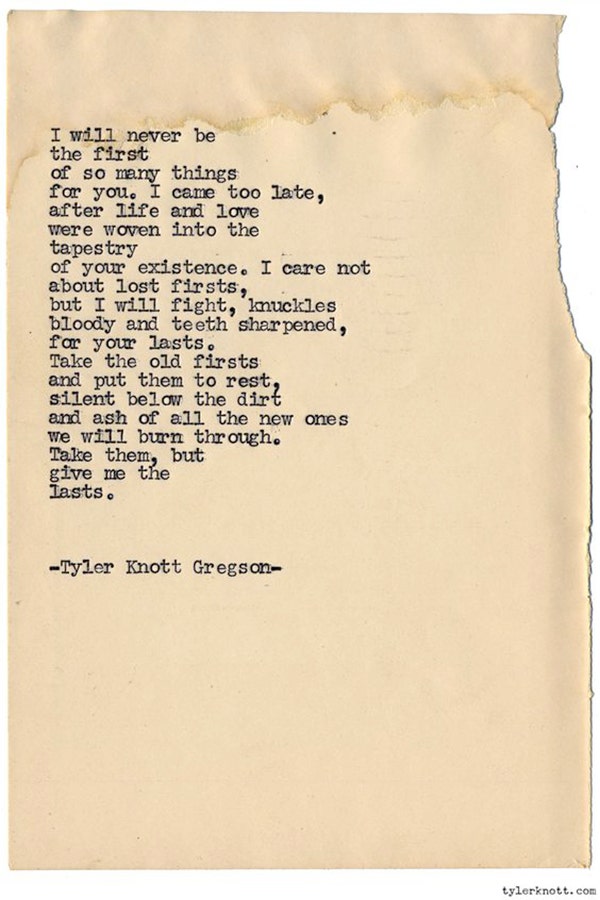 I will never be
the first
of so many things
for you. I came too late,
after life and love
were woven into the
tapestry
of your existence. I care not
about lost firsts,
but I will fight, knuckles
bloody and teeth sharpened,
for your lasts.
Take the old firsts
and put them to rest,
silent below the dirt
and ash of all the new ones
we will burn through.
Take them, but
give me the
lasts.
-Tyler Knott Gregson-
tylerknott.com